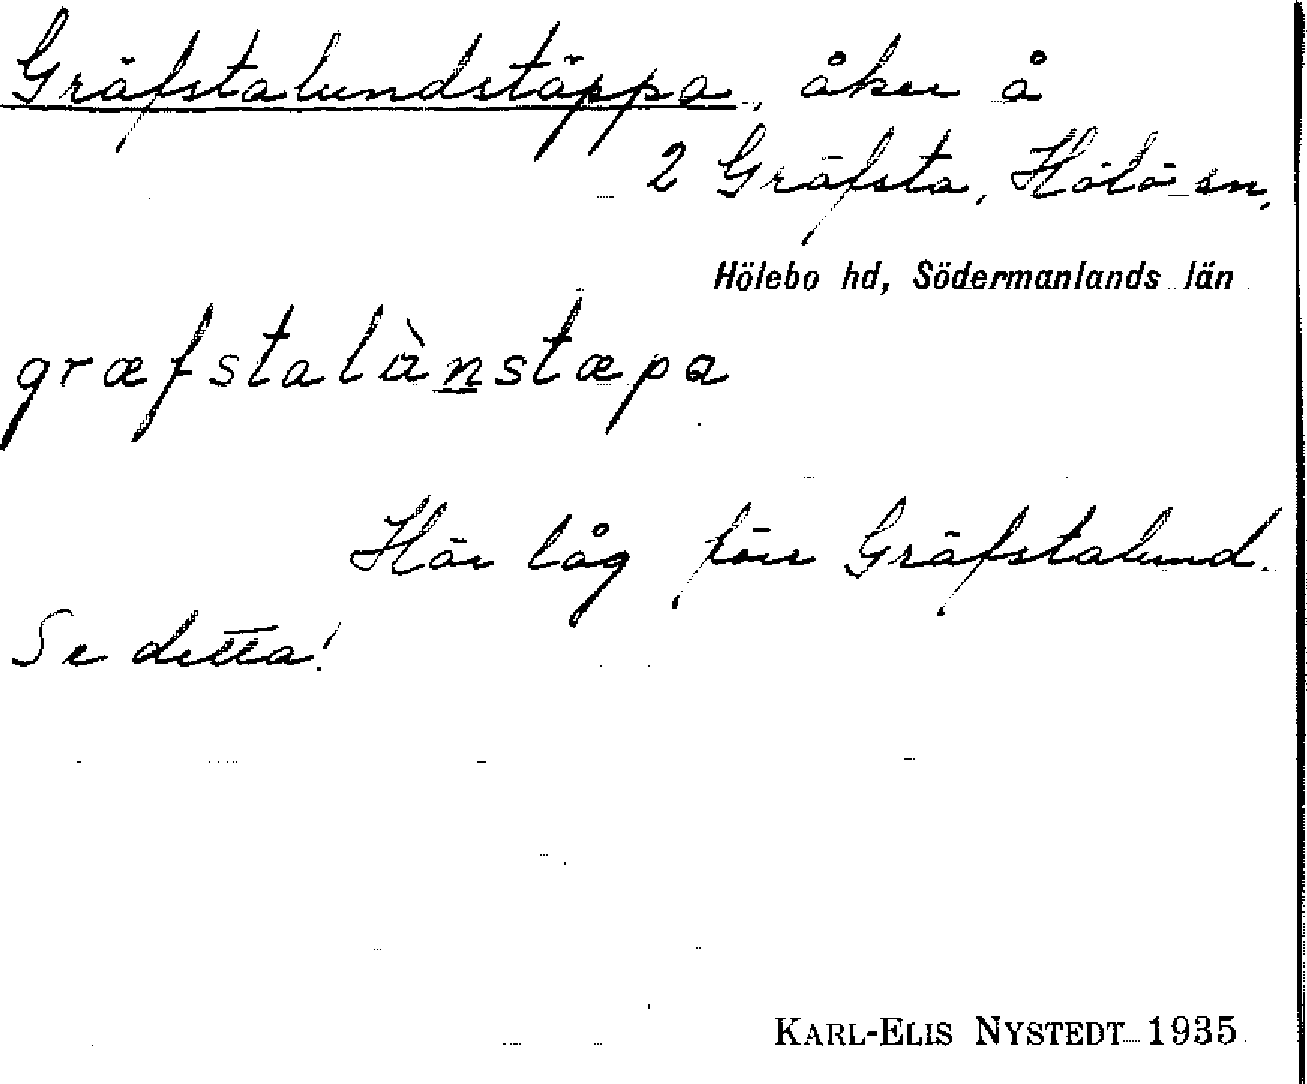 Gräfstalundstäppa, åker å
2 Gräfsta, Hölö sn,
Hölebo hd, Södermanlands län
græfstalùnstæpa
Här låg förr Gräfstalund.
Se detta!
KARL-ELIS NYSTEDT 1935